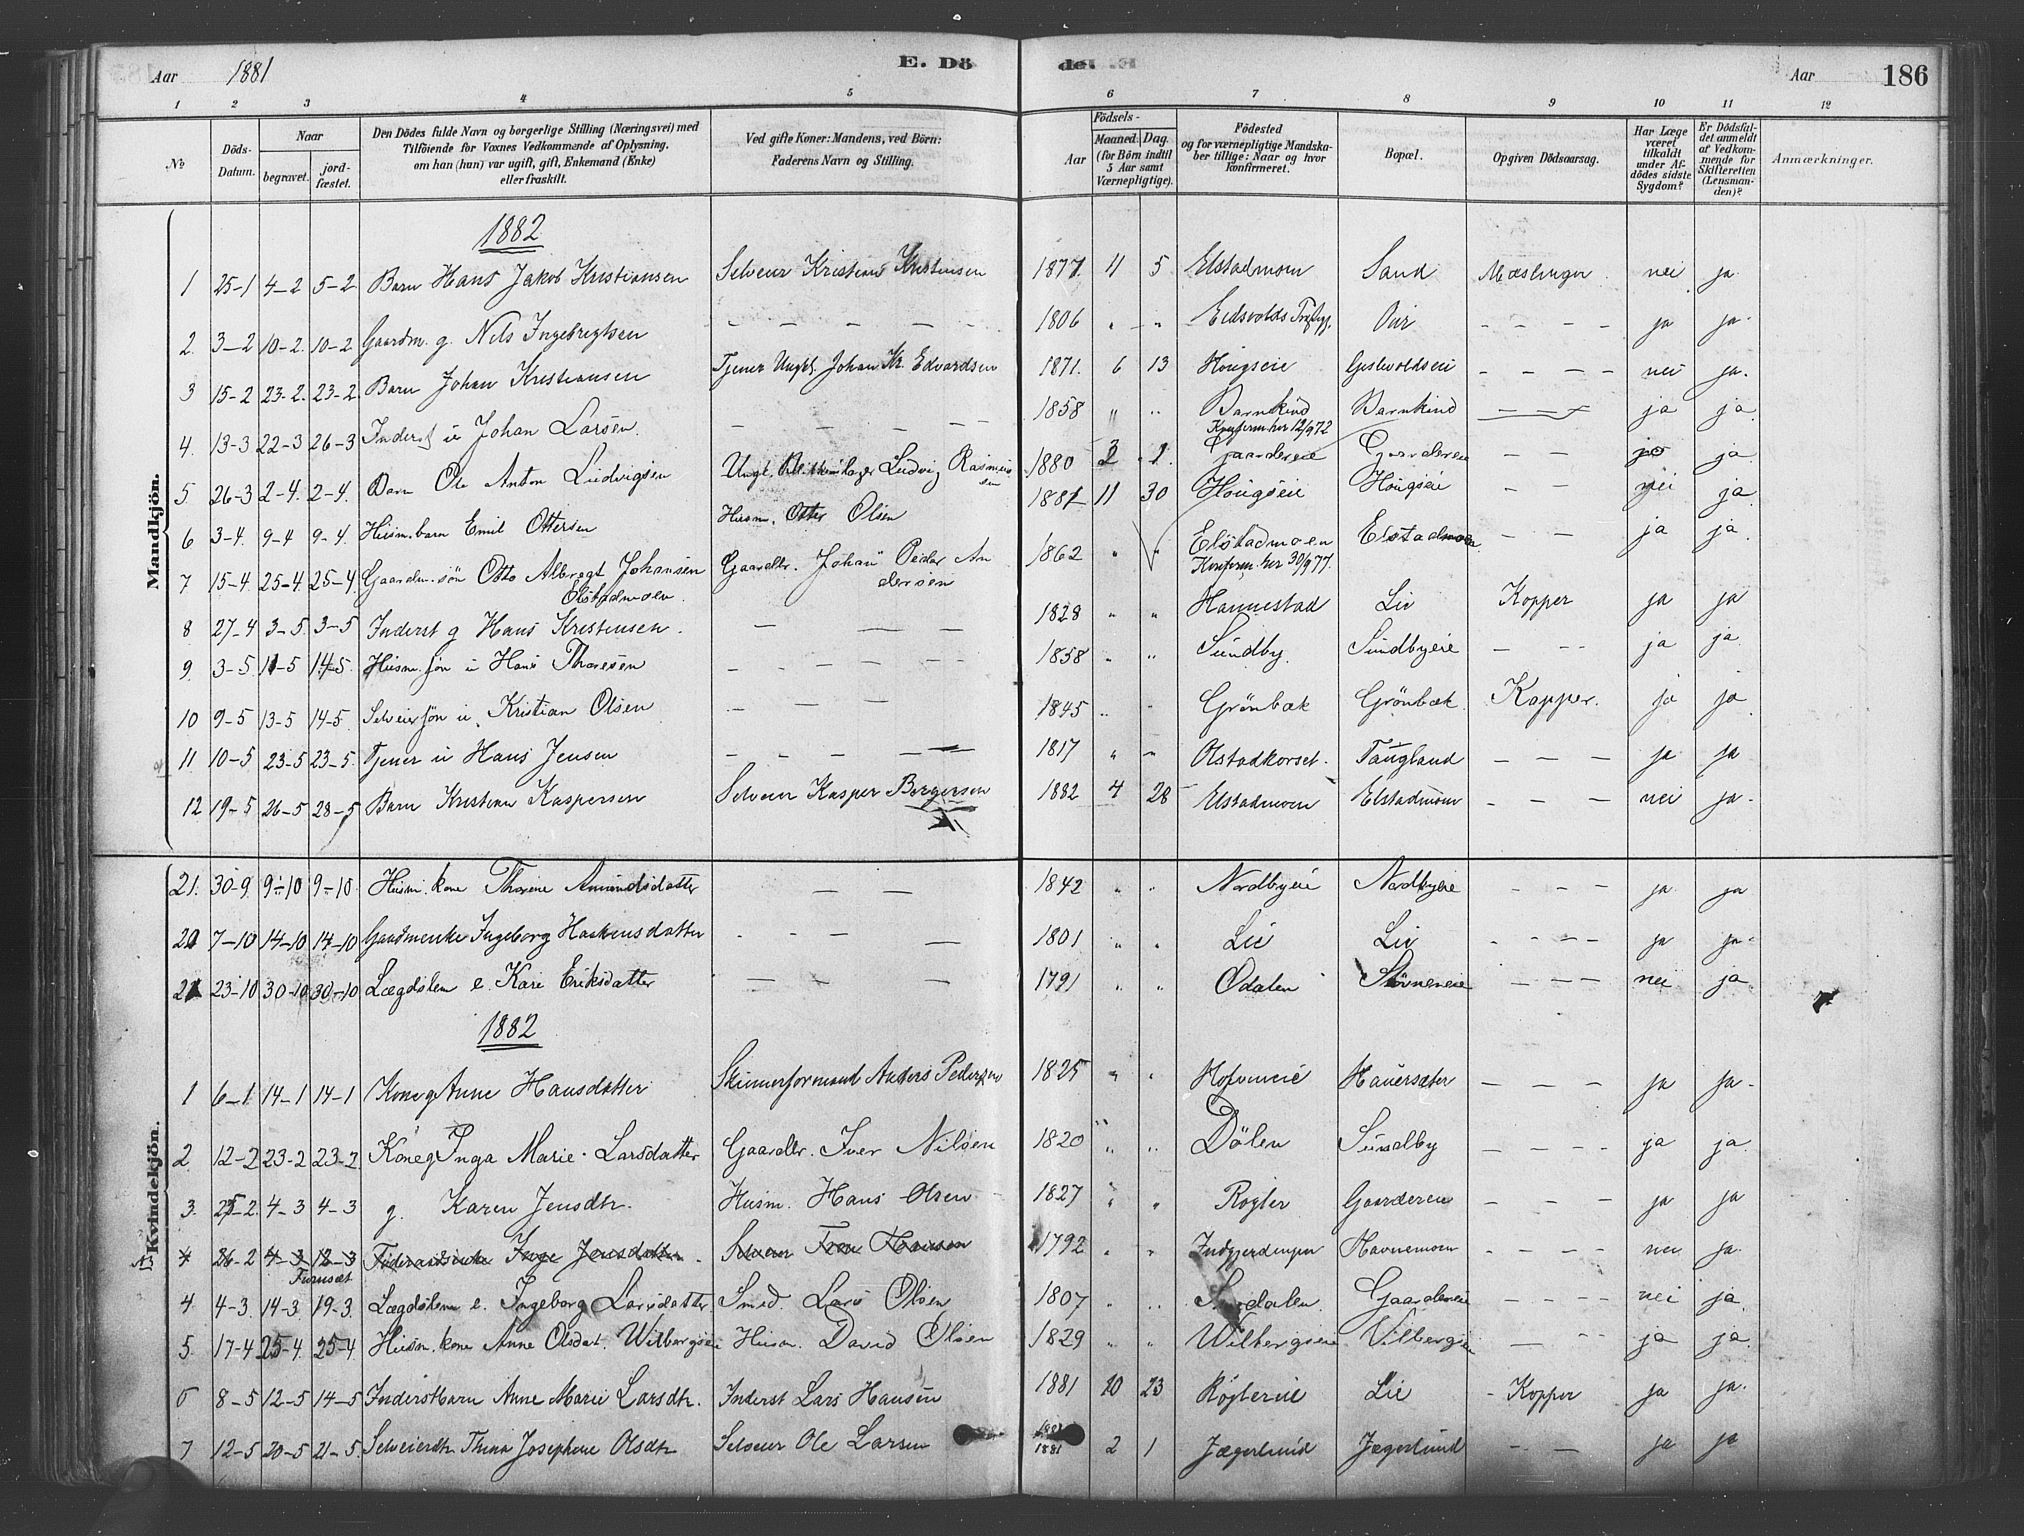 Aar 1881 E. Dö de. Aar 186
1 2 3 4 5 6 7 8 9 10 11 12
No
Döds-Datum.
Naar
begravet.
jord-fæstet.
Den Dödes fulde Navn og borgerlige Stilling (Næringsvei) med
Tilföiende for Voxnes Vedkommende af Oplysning,
om han (hun) var ugift, gift, Enkemand (Enke)
eller fraskilt.
Ved gifte Koner: Mandens, ved Börn:
Faderens Navn og Stilling.
Födsels-
Aar
Maaned. Dag.
(for Börn indtil
5 Aar samt
Værnepligtige).
Födested
og for værnepligtige Mandska-
ber tillige: Naar og hvor
konfirmeret.
Bopæl.
Opgiven Dödsaarsag.
Har Læge
været
tilkaldt
under Af-
dödes sidste
Sygdom?
Er Dödsfal-
det anmeldt
af Vedkom-
mende for
Skifteretten
(Lensman-
den)?
Anmærkninger.
Mandkjön.
1882
1 25-1 4-2 5-2 Barn Hans Jakob Kristiansen Selveier Kristian Kristensen 1877 11 5 Elstadmoen Sand Mæslinger nei ja
2. 3-2 10-2. 10-2 Gaardm. g. Nils Ingebregtsen — — — — — 1806 " " Eidsvolds — — — — ja ja.
3 15-2 23-2. 23-2. Barn Johan Kristiansen Tjener Ungk. Johan Kr. Edvardsen 1871. 6 13 Hougseie Gislevoldseie — — — — nei ja.
4. 13-3 22-3 26-3 Inderst u Johan Larsen. — — — — — 1858 " " Barnkind Barnkind — — — ja ja
Konferm. her 12/9 72
5 26-3 2-4. 2-4. Barn Ole Anton Ludvigsen Ungk. Ludvig Rasmus
sen 1880 2 1. Gaardereie Gaardereie — — ja
6 3-4. 9-4 9-4. Husm. barn Emil Ottersen Husm. Otter Olsen 1881 11 30 Hougseie Hougseie — — nei ja
7 15-4 25-4. 25-4. Gaardm. søn Otto Albregt Johansen Gaardbr. Johan Peder An
Elstadmoen. dersen 1862 " " Elstadmoen Elstadmoen — — ja ja.
Konferm. her 30/9 77.
8 27-4 3-5. 3-5 Inderst g Hans Kristensen. — — — 1828 " " Hannestad Lie Kopper ja ja
9. 3-5. 11-5 14-5. Husm. søn u Hans Thoresen — — — — — 1858 " " Sundby. Sundbyeie — — — ja ja.
10 9-5 13-5 14-5. Selveiersøn u. Kristian Olsen — — — — 1845 " " Grönbæk Grönbæk Kopper. ja ja
11. 10-5 23-5 23-5. Tjener u Hans Jensen — — — — — 1817 " " Olstadkorset. Taugland — — — ja ja
12 19-5 26-5 28-5 Barn Kristian Kaspersen Selveier Kasper Borgersen 1882 4 28 Elstadmoen Elstadmoen — — — nei ja.
Kvindekjön.
21. 30-9. 9-10 9-10. Husm. kone Thorine Amundsdatter — — — 1842 " " Nordbyeie Nordbyeie — — — ja ja
7-10 14-10 14-10 Gaardmenke Ingeborg Haakensdatter — — — — 1801 " " Lie Lie — — — — ja ja.
23-10 30-10 30-10 Lægdslem e. Kari Eriksdatter — — — — 1791 " " Odalen Störneseie — — — nei ja
1882
1 6-1 14-1 14-1 Kone g Anne Hansdatter Skinnerformand Anders Pedersen 1825 " " Hofvineie Hauersæter — — — — ja ja.
2. 12-2 23-2 23-2 Kone g Inga Marie Larsdatter Gaardbr. Iver Nilsen 1820 " " Dölen Sundby — — — — ja ja.
3. 25-2. 4-3 4-3 g. Karen Jensdtr. Husm. Hans Olsen 1827 " " Rogler Gaardereie — — — — ja ja
4 26-2 4-3 12-3 Föderaadsenke Inge Jensdatter. Selveier 1792 " " Havnemoen nei ja.
4. 4-3. 14-3. 19-3. Lægdslem e. Ingeborg Larsdatter Smed. Lars Olsen 1807 " " Gaardereie — — — — nei ja.
5. 17-4 25-4. 25-4 Husm. kone Anne Olsdat. Wilbergseie Husm. David Olsen 1829 " " Wilbergseie Vilbergseie — — — ja ja.
6 8-5 12-5 14-5 Inderstbarn Anne Marie Larsdtr. Inderst Lars Hansen 1881 10 23 Röglereie Lie Kopper ja ja.
7 12-5 20-5 21-5. Selveierdtr. Thina Josephine Olsdtr Selveier Ole Larsen 1881 2 1 Jægerlund Jægerlund — — ja ja